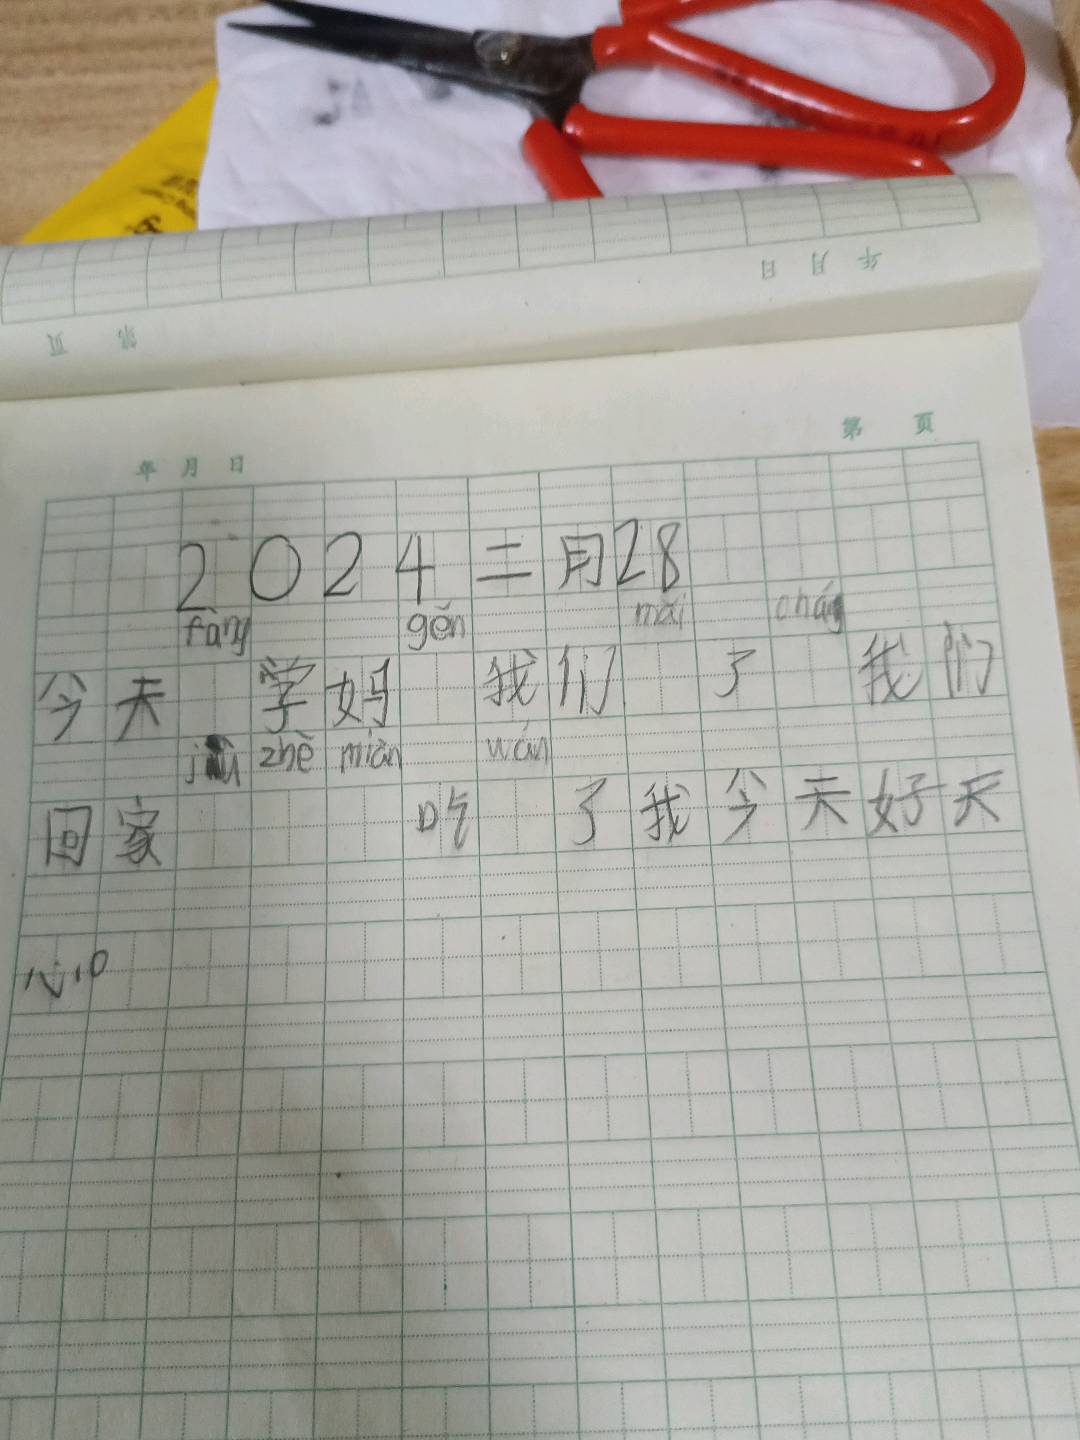 年 月 日
第 页
年 月 日
第 页
2024二月28
fàng gěn mǎi cháng
今天 学妈 我们 了 我们
jiù zhè miàn wán
回家 吃 了我今天好天
心。